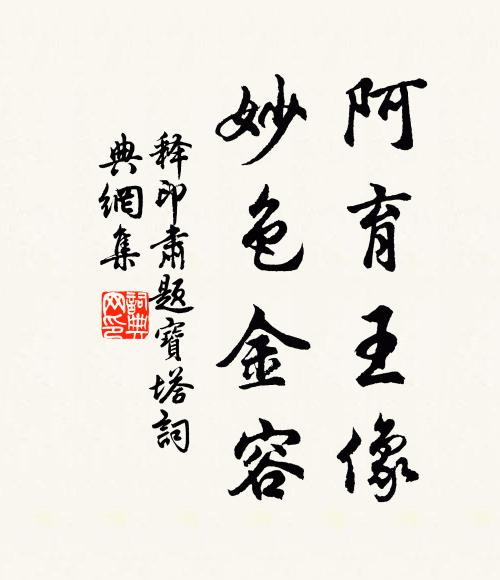 阿育王像
妙色金容
释印肃題寶塔詞
典網集
詞典网印